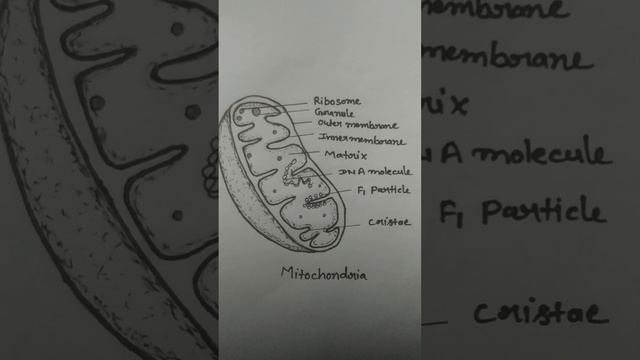 Ribosome
Granule
Outer membrane
Inner membrane
Matrix
DNA molecule
F₁ Particle
Cristae
Mitochondria
membrane
membrane
rix
NA molecule
F₁ Particle
Cristae